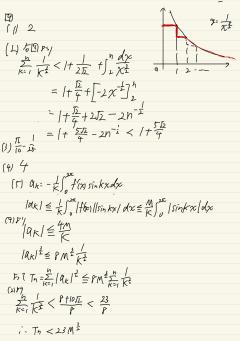 (1) 2
x = 1/x^(3/2)
0 1 2 ...
(2) 右図より
Σ_{k=1}^{n} 1/k^(3/2) < 1 + 1/(2√2) + ∫_2^n dx/x^(3/2)
= 1 + √2/4 + [-2x^(-1/2)]_2^n
= 1 + √2/4 + 2√2 - 2n^(-1/2)
= 1 + 5√2/4 - 2n^- < 1 + 5√2/4
(3)
(4) 4
(5) a_k = -1/k ∫_0^{2π} f'(x) sin kx dx
|a_k| ≤ 1/k ∫_0^{2π} |f'(x)||sin kx| dx ≤ M/k ∫_0^{2π} |sin kx| dx
(4)より
|a_k| ≤ 4M/k
|a_k|^(3/2) ≤ 8M^(3/2) 1/k^(3/2)
よって T_n = Σ_{k=1}^{n} |a_k|^(3/2) ≤ 8M^(3/2) Σ_{k=1}^{n} 1/k^(3/2)
(2)より
Σ_{k=1}^{n} 1/k^(3/2) < (8+10√2)/8 < 23/8
∴ T_n < 23M^(3/2)